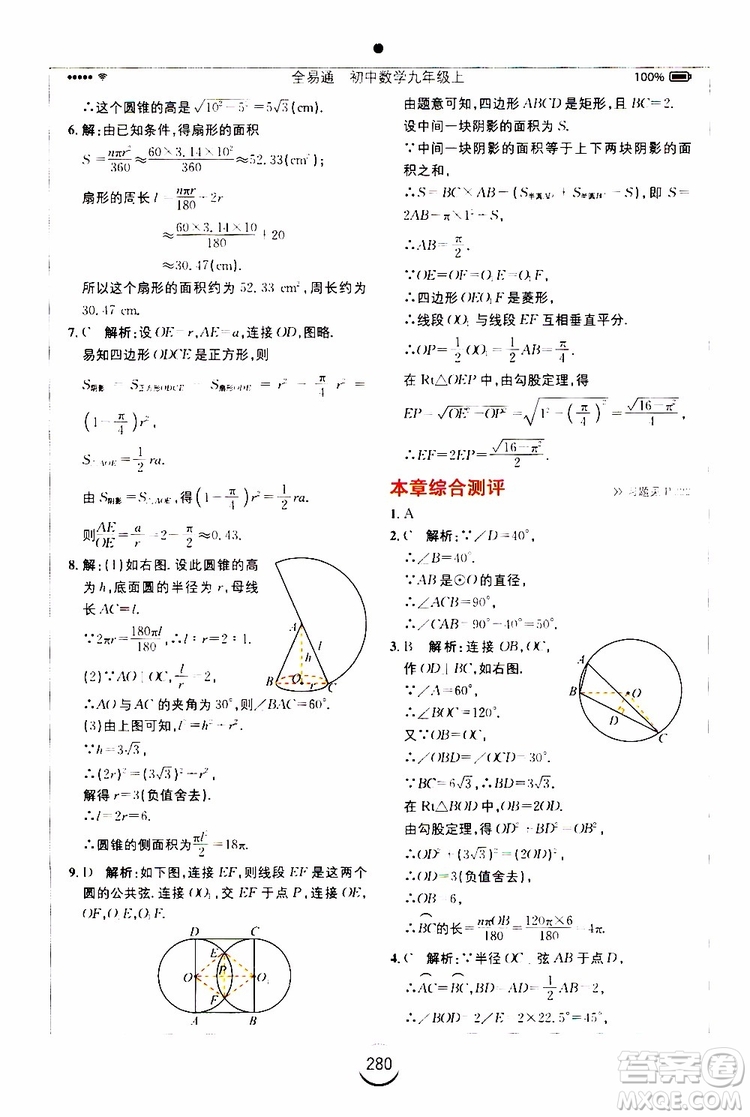 全易通 初中数学九年级上
100%
∴这个圆锥的高是√(10²-5²)=5√3(cm).
6. 解:由已知条件,得扇形的面积
S=nπr²/360≈60×3.14×10²/360≈52.33(cm²),
扇形的周长 l=nπr/180+2r
≈60×3.14×10/180+20
≈30.47(cm).
所以这个扇形的面积约为 52.33 cm²,周长约为
30.47 cm.
7. C 解析:设 OE=r,AE=a,连接 OD,图略.
易知四边形 ODCE 是正方形,则
S阴影=S正方形ODCE-S扇形=r²-π/4 r²=
(1-π/4)r²,
S△AOE=1/2 ra.
由 S阴影=S△AOE,得(1-π/4)r²=1/2 ra,
则AE/OE=a/r≈0.43.
8. 解:(1)如右图.设此圆锥的高
为 h,底面圆的半径为 r,母线
长 AC=l.
∵2πr=180πl/180,∴l∶r=2∶1.
(2)∵AO⊥OC,l/r=2,
∴AO 与 AC 的夹角为 30°,则∠BAC=60°.
(3)由上图可知,l²=h²+r².
∵h=3√3,
∴(2r)²=(3√3)²+r²,
解得 r=3(负值舍去).
∴l=2r=6.
∴圆锥的侧面积为πl²/2=18π.
A
l
h
B
O
r
C
9. D 解析:如下图,连接 EF,则线段 EF 是这两个
圆的公共弦.连接 OO₁,交 EF 于点 P,连接 OE,
OF,O₁E,O₁F.
D
C
E
O
P
O₁
F
A
B
由题意可知,四边形 ABCD 是矩形,且 BC=2.
设中间一块阴影的面积为 S.
∵中间一块阴影的面积等于上下两块阴影的面
积之和,
∴S=BC×AB-(S半圆O+S半圆O₁-S),即 S=
2AB-π×1²+S.
∴AB=π/2.
∵OE=OF=O₁E=O₁F,
∴四边形 OEO₁F 是菱形,
∴线段 OO₁ 与线段 EF 互相垂直平分.
∴OP=1/2 OO₁=1/2 AB=π/4.
在 Rt△OEP 中,由勾股定理,得
EP=√(OE²-OP²)=√(1²-(π/4)²)=√(16-π²)/4,
∴EF=2EP=√(16-π²)/2.
本章综合测评
习题见 P
1. A
2. C 解析:∵∠D=40°,
∴∠B=40°.
∵AB 是⊙O 的直径,
∴∠ACB=90°,
∴∠CAB=90°-40°=50°.
3. B 解析:连接 OB,OC,
作 OD⊥BC,如右图.
∵∠A=60°,
∴∠BOC=120°.
又∵OB=OC,
∴∠OBD=∠OCD=30°.
∵BC=6√3,∴BD=3√3.
在 Rt△BOD 中,OB=2OD,
由勾股定理,得 OD²+BD²=OB²,
∴OD²+(3√3)²=(2OD)²,
∴OD=3(负值舍去).
∴OB=6,
∴BC的长=nπOB/180=120π×6/180=4π.
A
B
O
D
C
4. C 解析:∵半径 OC⊥弦 AB 于点 D,
∴AC=BC,
∴∠BOC=2∠E=2×22.5°=45°.
280
答案圈
MXQE.COM